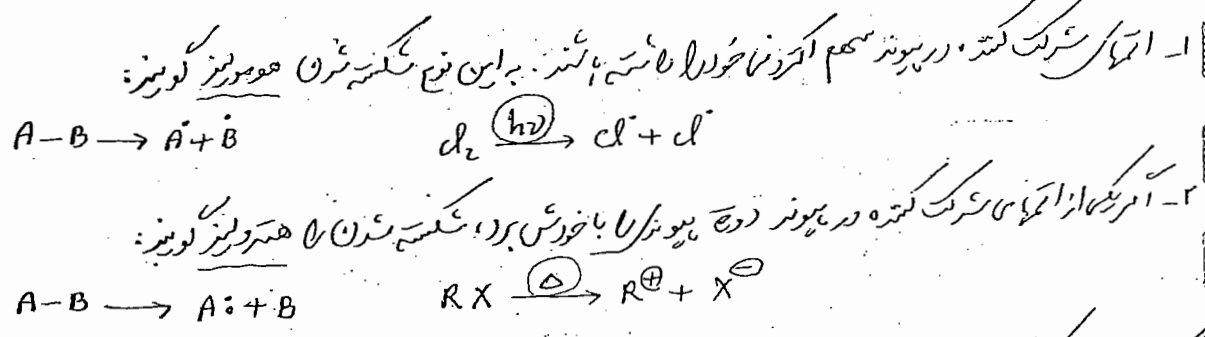 ۱- اتمهای شرکت کننده در پیوند سهم الکترونی خود را داشته باشند. به این نوع شکسته شدن هومولیز گویند:
A-B → A• + B•    Cl₂ —hν→ Cl• + Cl•
۲- اگر یکی از اتمهای شرکت کننده در پیوند زوج پیوندی را با خودش برد، شکسته شدن را هترولیز گویند:
A-B → A: + B    RX —Δ→ R⊕ + X⊖